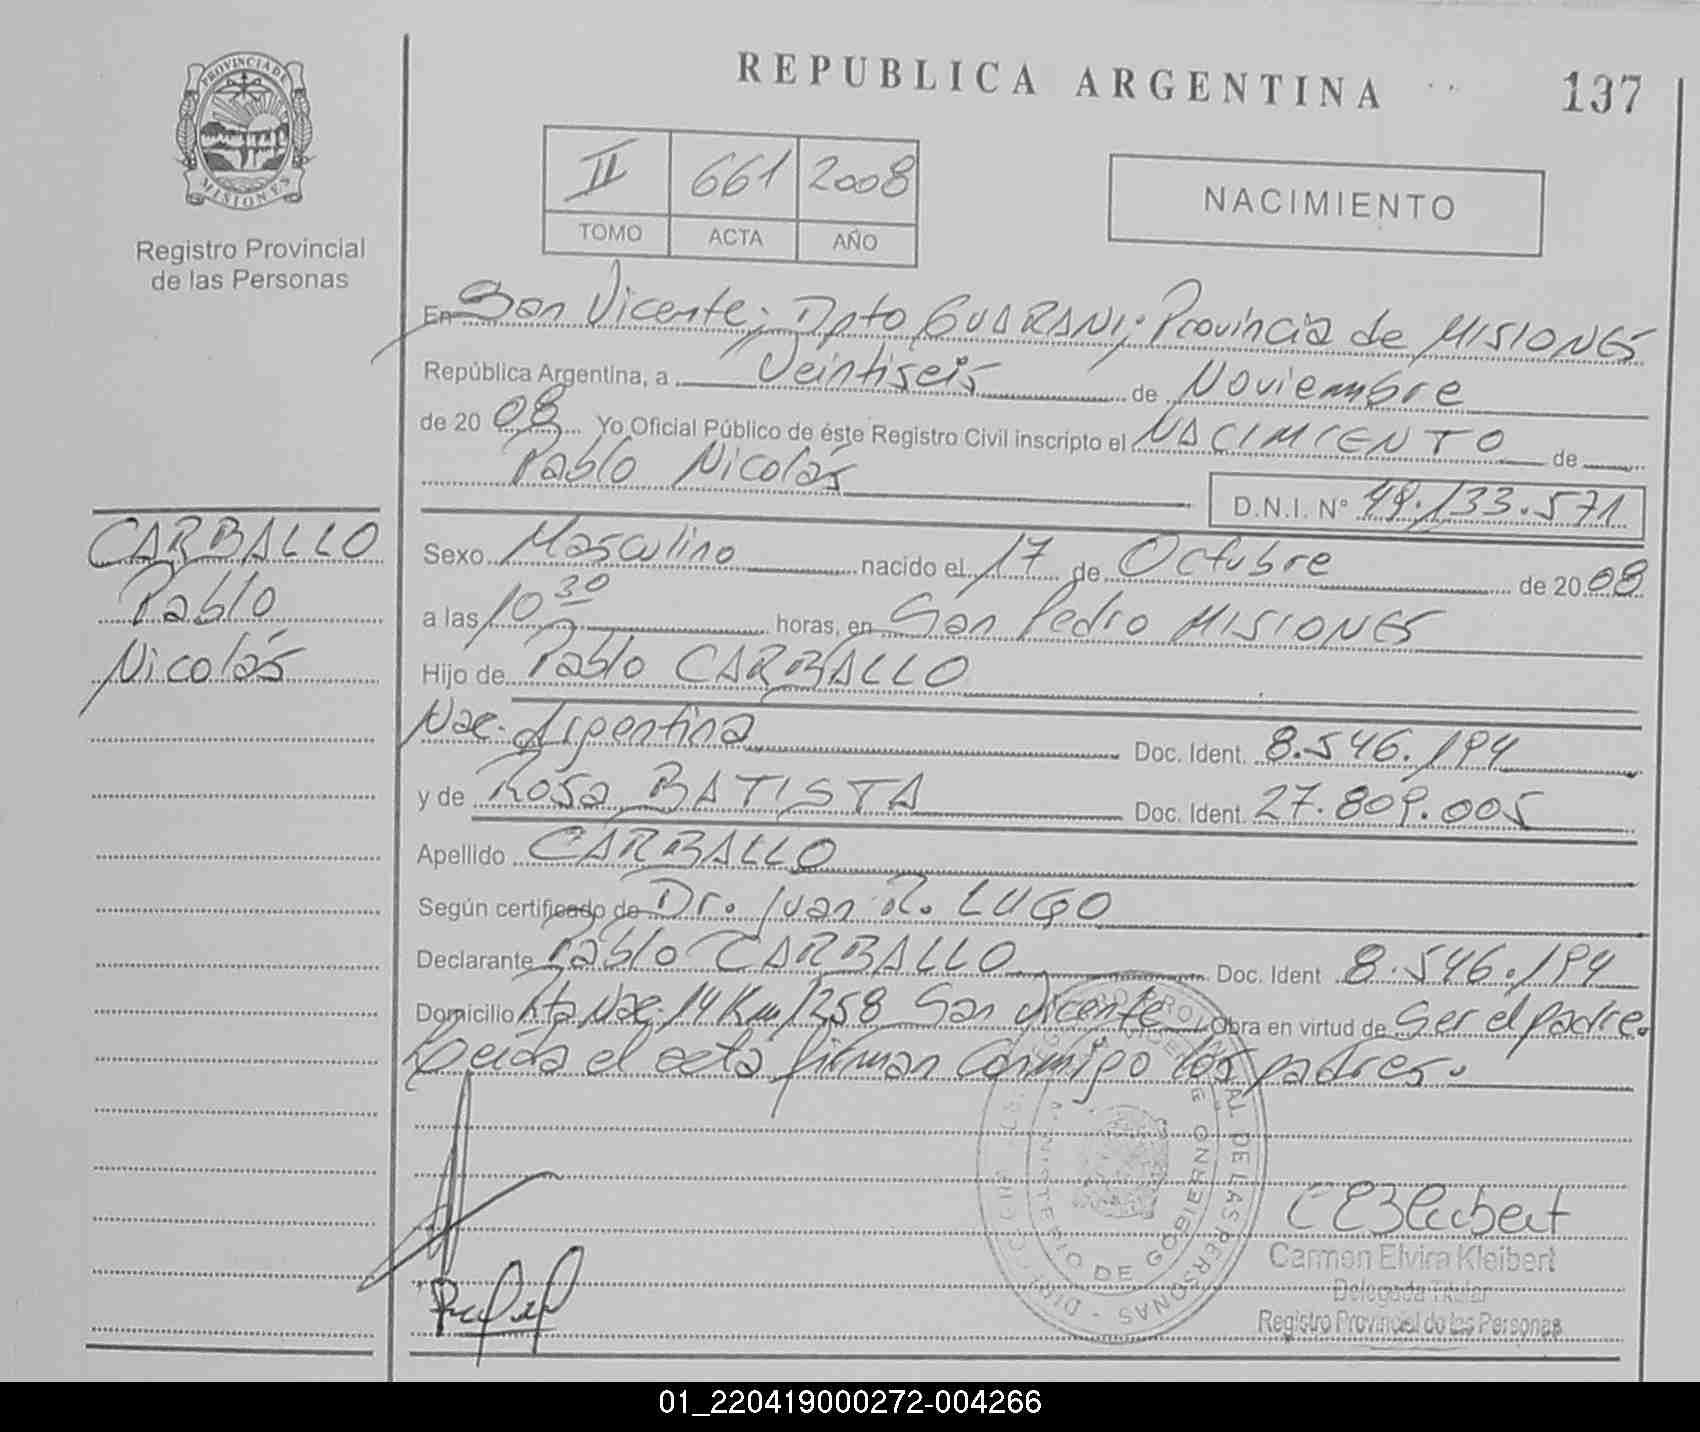 PROVINCIA DE
MISIONES
Registro Provincial
de las Personas
REPUBLICA ARGENTINA
137
II 661 2008
TOMO ACTA AÑO
NACIMIENTO
En San Vicente; Dpto GUARANI; Provincia de MISIONES
República Argentina, a Veintiseis de Noviembre
de 2008 Yo Oficial Público de éste Registro Civil inscripto el NACIMIENTO de
Pablo Nicolás D.N.I. Nº 49.133.571
CARBALLO
Pablo
Nicolás
Sexo Masculino nacido el 17 de Octubre de 2008
a las 10 30 horas, en San Pedro MISIONES
Hijo de Pablo CARBALLO
Nac. Argentina Doc. Ident. 8.546.194
y de Rosa BATISTA Doc. Ident. 27.809.005
Apellido CARBALLO
Según certificado de Dr. Juan R. LUGO
Declarante Pablo CARBALLO Doc. Ident 8.546.194
Domicilio Rta Nac. 14 Km 1258 San Vicente Obra en virtud de Ser el padre.
Leída el acta firman conmigo los padres.
MINISTERIO DE GOBIERNO
Carmen Elvira Kleibert
Delegada Titular
Registro Provincial de las Personas
01_220419000272-004266